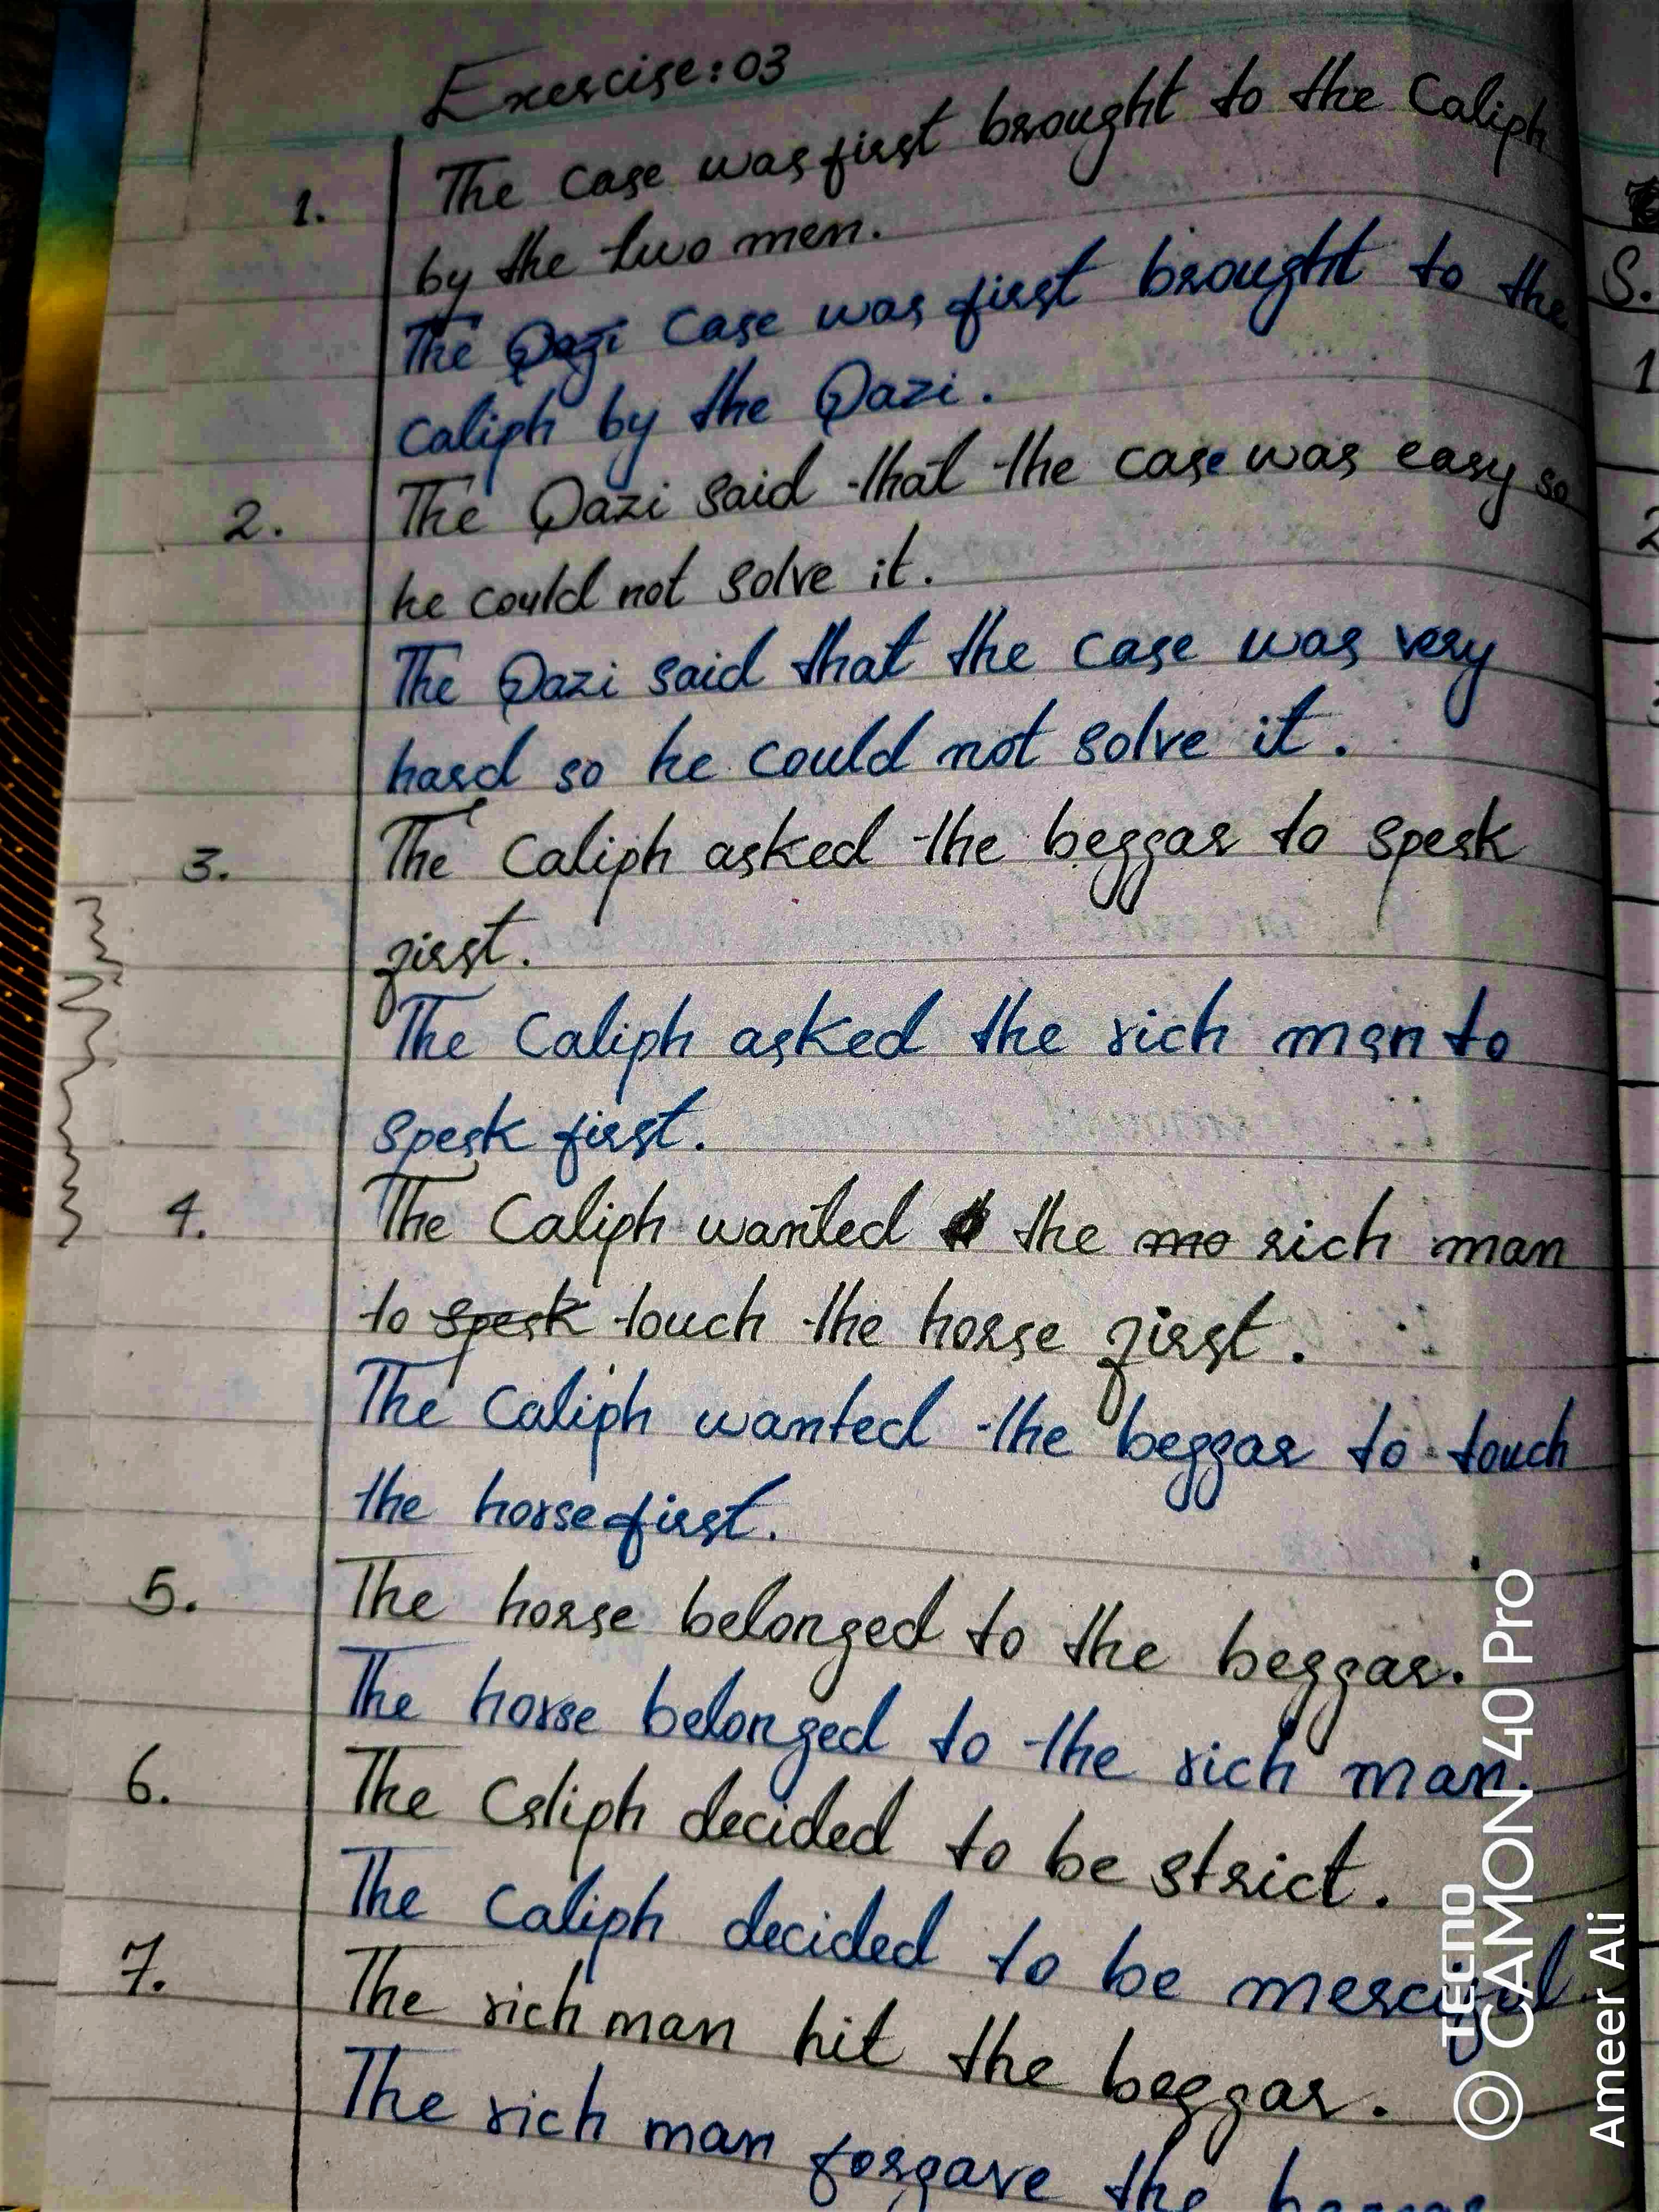 Exercise: 03
1. The case was first brought to the Caliph
by the two men.
The Qazi case was first brought to the
caliph by the Qazi.
2. The Qazi said that the case was easy so
he could not solve it.
The Qazi said that the case was very
hard so he could not solve it.
3. The Caliph asked the beggar to speak
first.
The Caliph asked the rich man to
speak first.
4. The Caliph wanted the mo rich man
to speak touch the horse first.
The Caliph wanted the beggar to touch
the horse first.
5. The horse belonged to the beggar.
The horse belonged to the rich man.
6. The Caliph decided to be strict.
The Caliph decided to be merciful.
7. The rich man hit the beggar.
The rich man forgave the
S.
1
2
TECNO
CAMON 40 Pro
Ameer Ali